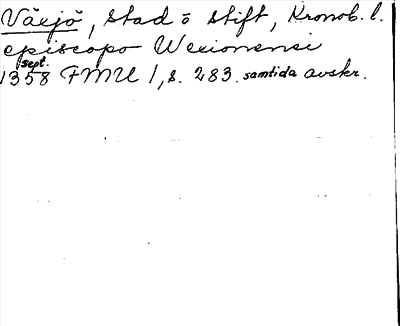 Växjö, stad o stift, Kronob. l.
episcopo Wexionensi
sept.
1358 FMU 1, s. 283. samtida avskr.